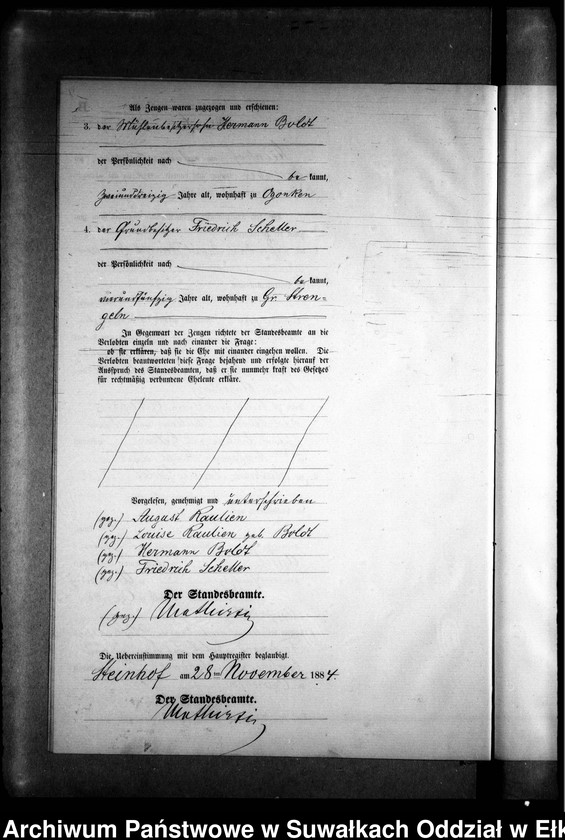 Als Zeugen waren zugezogen und erschienen:
3. der Mühlenbesitzersohn Hermann Boldt
der Persönlichkeit nach
be kannt,
zweiunddreizig Jahre alt, wohnhaft zu Ogonken
4. der Grundbesitzer Friedrich Scheller
der Persönlichkeit nach
be kannt,
vierundfünfzig Jahre alt, wohnhaft zu Gr. Stren=
geln
In Gegenwart der Zeugen richtete der Standesbeamte an die
Verlobten einzeln und nach einander die Frage:
ob sie erklären, daß sie die Ehe mit einander eingehen wollen. Die
Verlobten beantworteten diese Frage bejahend und erfolgte hierauf der
Ausspruch des Standesbeamten, daß er sie nunmehr kraft des Gesetzes
für rechtmäßig verbundene Eheleute erkläre.
Vorgelesen, genehmigt und unterschrieben
(gez.) August Raulien
(gez.) Louise Raulien geb. Boldt
(gez.) Hermann Boldt
(gez.) Friedrich Scheller
Der Standesbeamte.
(gez.)
Die Uebereinstimmung mit dem Hauptregister beglaubigt.
Steinhof am 28ten November 1884.
Der Standesbeamte.
Archiwum Państwowe w Suwałkach Oddział w Ełk